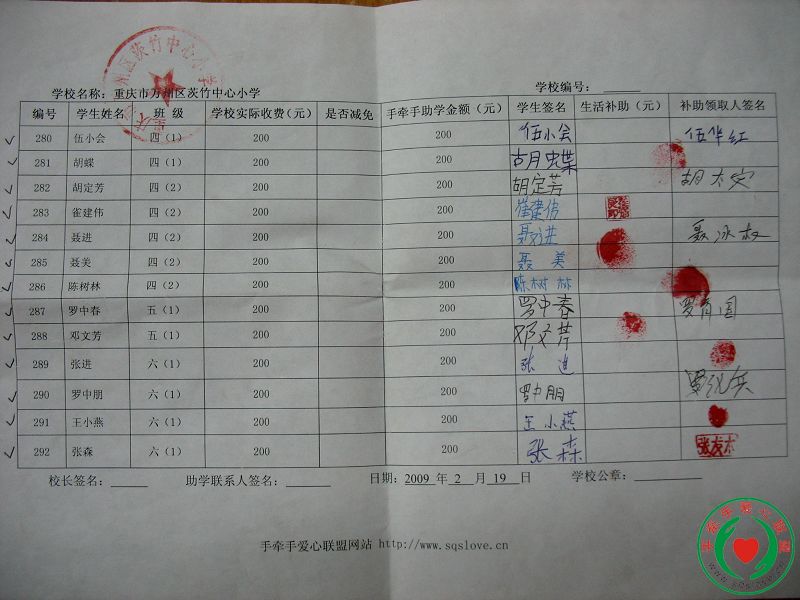 学校名称：重庆市万州区茨竹中心小学 学校编号：
编号 学生姓名 班 级 学校实际收费（元） 是否减免 手牵手助学金额（元） 学生签名 生活补助（元） 补助领取人签名
280 伍小会 四（1） 200 200 伍小会 伍华红
281 胡蝶 四（1） 200 200 胡蝶
282 胡定芳 四（2） 200 200 胡定芳 胡太安
283 崔建伟 四（2） 200 200 崔建伟
284 聂进 四（2） 200 200 聂进
285 聂美 四（2） 200 200 聂美
286 陈树林 四（2） 200 200 陈树林
287 罗中春 五（1） 200 200 罗中春 罗有国
288 邓文芳 五（1） 200 200 邓文芳
289 张进 六（1） 200 200 张进
290 罗中朋 六（1） 200 200 罗中朋
291 王小燕 六（1） 200 200 王小燕
292 张森 六（1） 200 200 张森 张友木
校长签名： 助学联系人签名： 日期：2009 年 2 月 19 日 学校公章：
手牵手爱心联盟网站 http://www.sqslove.cn
手牵手爱心联盟